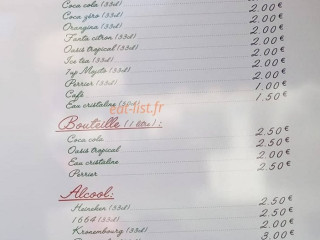 Coca cola (33cl) 2.00€
Coca zéro (33cl) 2.00€
Orangina (33cl) 2.00€
Fanta citron (33cl) 2.00€
Oasis tropical (33cl) 2.00€
Ice tea (33cl) 2.00€
7up Mojito (33cl) 2.00€
Perrier (33cl) 2.00€
Café 1.00€
Eau cristaline (50cl) 1.50€
eat-list.fr
Bouteille (1 litre):
Coca cola 2.50€
Oasis tropical 2.50€
Eau cristaline 2.00€
Perrier 2.50€
Alcool:
Heineken (33cl) 2.50€
1664 (33cl) 2.50€
Kronenbourg (33cl) 2.00€
3.00€